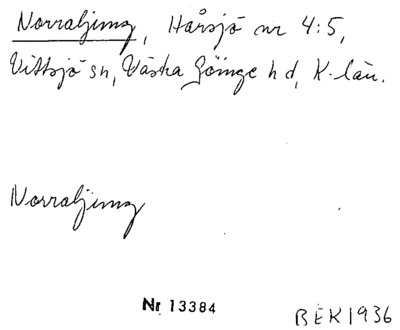 Norraljung, Hårsjö nr 4:5,
Vittsjö sn, Västra Göinge hd, K-län.
Norraljung
Nr 13384
BEK 1936